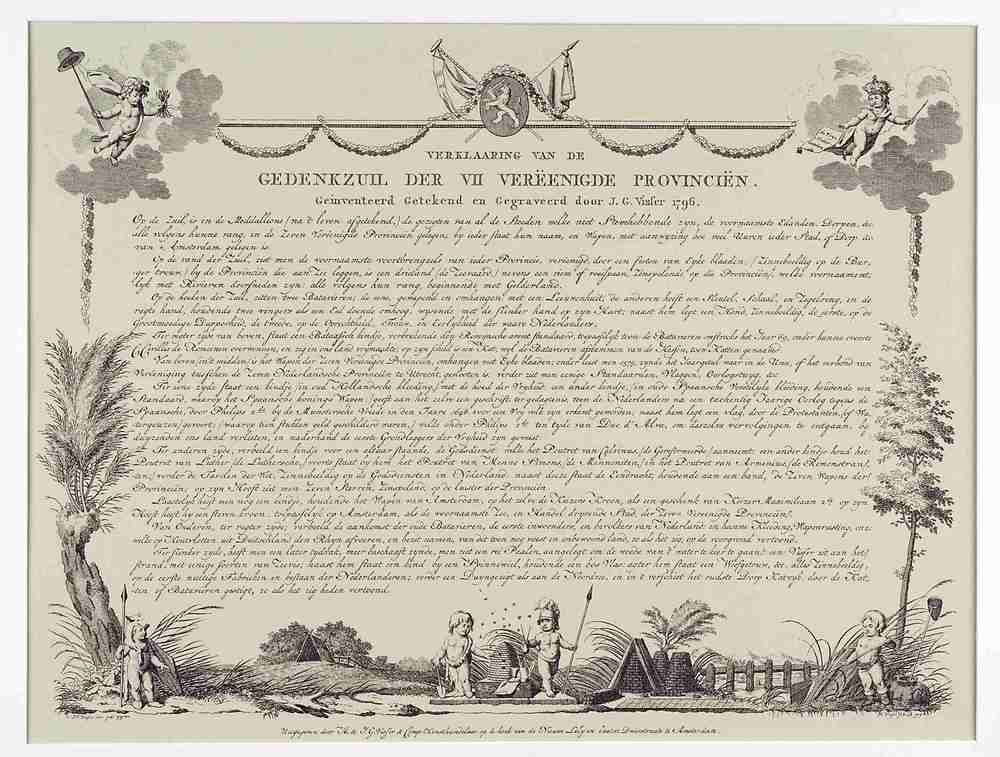 VERKLAARING VAN DE
GEDENKZUIL DER VII VERËENIGDE PROVINCIËN.
Geïnventeerd Getekend en Gegraveerd door J. G. Visser 1796.
Op de Zuil, is in de Medállions, (na 't leven afgetekend,) de gezigten van al de Steeden welke niet Stemhebbende zyn, de voornaamste Eilanden, Dorpen, &c.
alle volgens hunne rang, in de Zeven Vereenigde Provinciën gelegen; by ieder staat hun naam, en Wapen, met aanwyzing hoe veel Uuren ieder Stad, of Dorp &c.
van Amsterdam gelegen is.
Op de rand der Zuil, ziet men de voornaamste voortbrengzels van ieder Provincie, verëenigd, door een festoen van Eyke blaaden,
ger trouw) by de Provinciën die aan Zee leggen, is een
lyk met Rivieren doorsneden zyn: alle volgens hun rang, beginnende met Gelderland.
Op de beide der Zuil, zitten twee Batavieren; de eene, gewapend en omhangen met een Leeuwenhuit; de anderen heeft een Sleutel, Schaal, en Zegelring, en de
regte hand, houdende twee vingers als een Eed doende omhoog, wyzende met de slinker hand op zyn Hart; naast hem legt een Hond, zinnebeeldig, de eerste, op de
Grootmoedige Dapperheid, de tweede, op de Oprechtheid, Trouw, en Eerlykheid der waare Nederlanders.
Ter weder zyde van beven, staat een Bataafsch kindje, vertreedende den Romynsche arent standaart, toepasselyk toen de Batavieren omstreeks het Jaar 69, onder hunne overste
Civilis de Romeinen overwonnen, en zig en ons land vrymaakte; op zyn schild is een Kat, wyl de Batavieren afstammen van de Hessen, toen Katten genaamd.
Van boven in 't midden, is het Wapen der Zeven Vereenigde Provinciën, omhangen van Eyke blaaden; onder leest men 1579, zynde het Jaargetal waar in de Unie, of het verbond van
Vereeniging tusschen de Zeven Nederlandsche Provinciën te Utrecht, gesloten is. verder ziet men eenige Standaarden, Wapen, Oorlogstuyg, &c.
Ter eene zyde staat een kindje (in oud Hollandsche kleeding,) met de hoed der Vryheid. een ander kindje, (in oude Spaansche Vorstelyke kleeding, houdende een
Standaard, waar op het Spaansche konings Wapen) geeft aan het zelve een geschrift, ter gedagtenis, toen de Nederlanders na een tachentig Jaarige Oorlog tegens de
Spaansche, door Philips 4de by de Munstersche Vrede in den Jaare 1648, voor een Vry volk zyn erkent geworden; naast hem legt een vlag, door de Protestanten, (of Wa-
tergeuzen) gevoert, (waar op tien stuiden geld geschilderd waren,) welke onder Philips 2de ten tyde van Duc d'Alva, om deszelvs vervolgingen te ontgaan, by
duyzenden ons land verlieten, en naderhand de eerste Grondleggers der Vryheid zyn geweest.
Ter anderen zyde, verbeeld een kindje voor een altaar staande, de Godsdienst, welk het Pourtret van Calvinus, (de Gereformeerde) aanneemt; een ander kindje houd het
Poutret van Luther (de Luthersche,) voorts staat op hem het Poutret van Menno Simons, (de Mennoniten,) en het Poutret van Armenius, (de Remonstran-
ten,) verder de Tafelen der Wet, Zinnebeeldig op de Godsdiensten in Nederland. naast deeze staat de Eendracht, houdende aan een band, de Zeven Wapens der
Provinciën, op zyn Hooft ziet men Zeven Starren, zinspelend, op de luister der Provinciën.
Laastelyk heeft men nog een kindje, houdende het Wapen van Amsterdam, op het zelve de Keizers Kroon, als een geschenk van Keizer Maximiliaan 2de op zyn
Hooft heeft hy een steven kroon, toepasselyk op Amsterdam, als de voornaamste Zee, en Handel dryvende Stad, der Zeven Vereenigde Provinciën.
Van Onderen, ter regter zyde, verbeeld de aankomst der oude Batavieren, de eerste inwoonders, en bevolkers van Nederland in hunne Kleeding, Wapenrusting, enz.
welke op Houtvlotten uit Duitschland den Rhyn afvoeren, en bezit namen, van dit toen nog woest en onbewoond land, zo als het zig op de voorgrond vertoond.
Ter slinker zyde, heeft men een later tydvak, meer beschaaft zynde, men ziet een rei Paalen, aangelegt om de woede van 't water te keer te gaan; een Visser zit aan het
strand, met eenige soorten van Zeevis; naast hem staat een kind by een Spinnewiel, houdende een bos Vlas, agter hem staat een Weefgetouw, &c. alles Zinnebeeldig,
op de eerste nuttige Fabrieken en bestaan der Nederlanderen; verder een Duyngezigt als aan de Noordzee, en in 't verschiet het oudste Dorp Katwyk, door de Kat-
ten of Batavieren gestigt, zo als het zig heden vertoond.
Uitgegeven door M. & J. G. Visser & Comp. Kunsthandelaar op de hoek van de Nieuwe Lely en Eerste Dwarsstraat te Amsterdam.